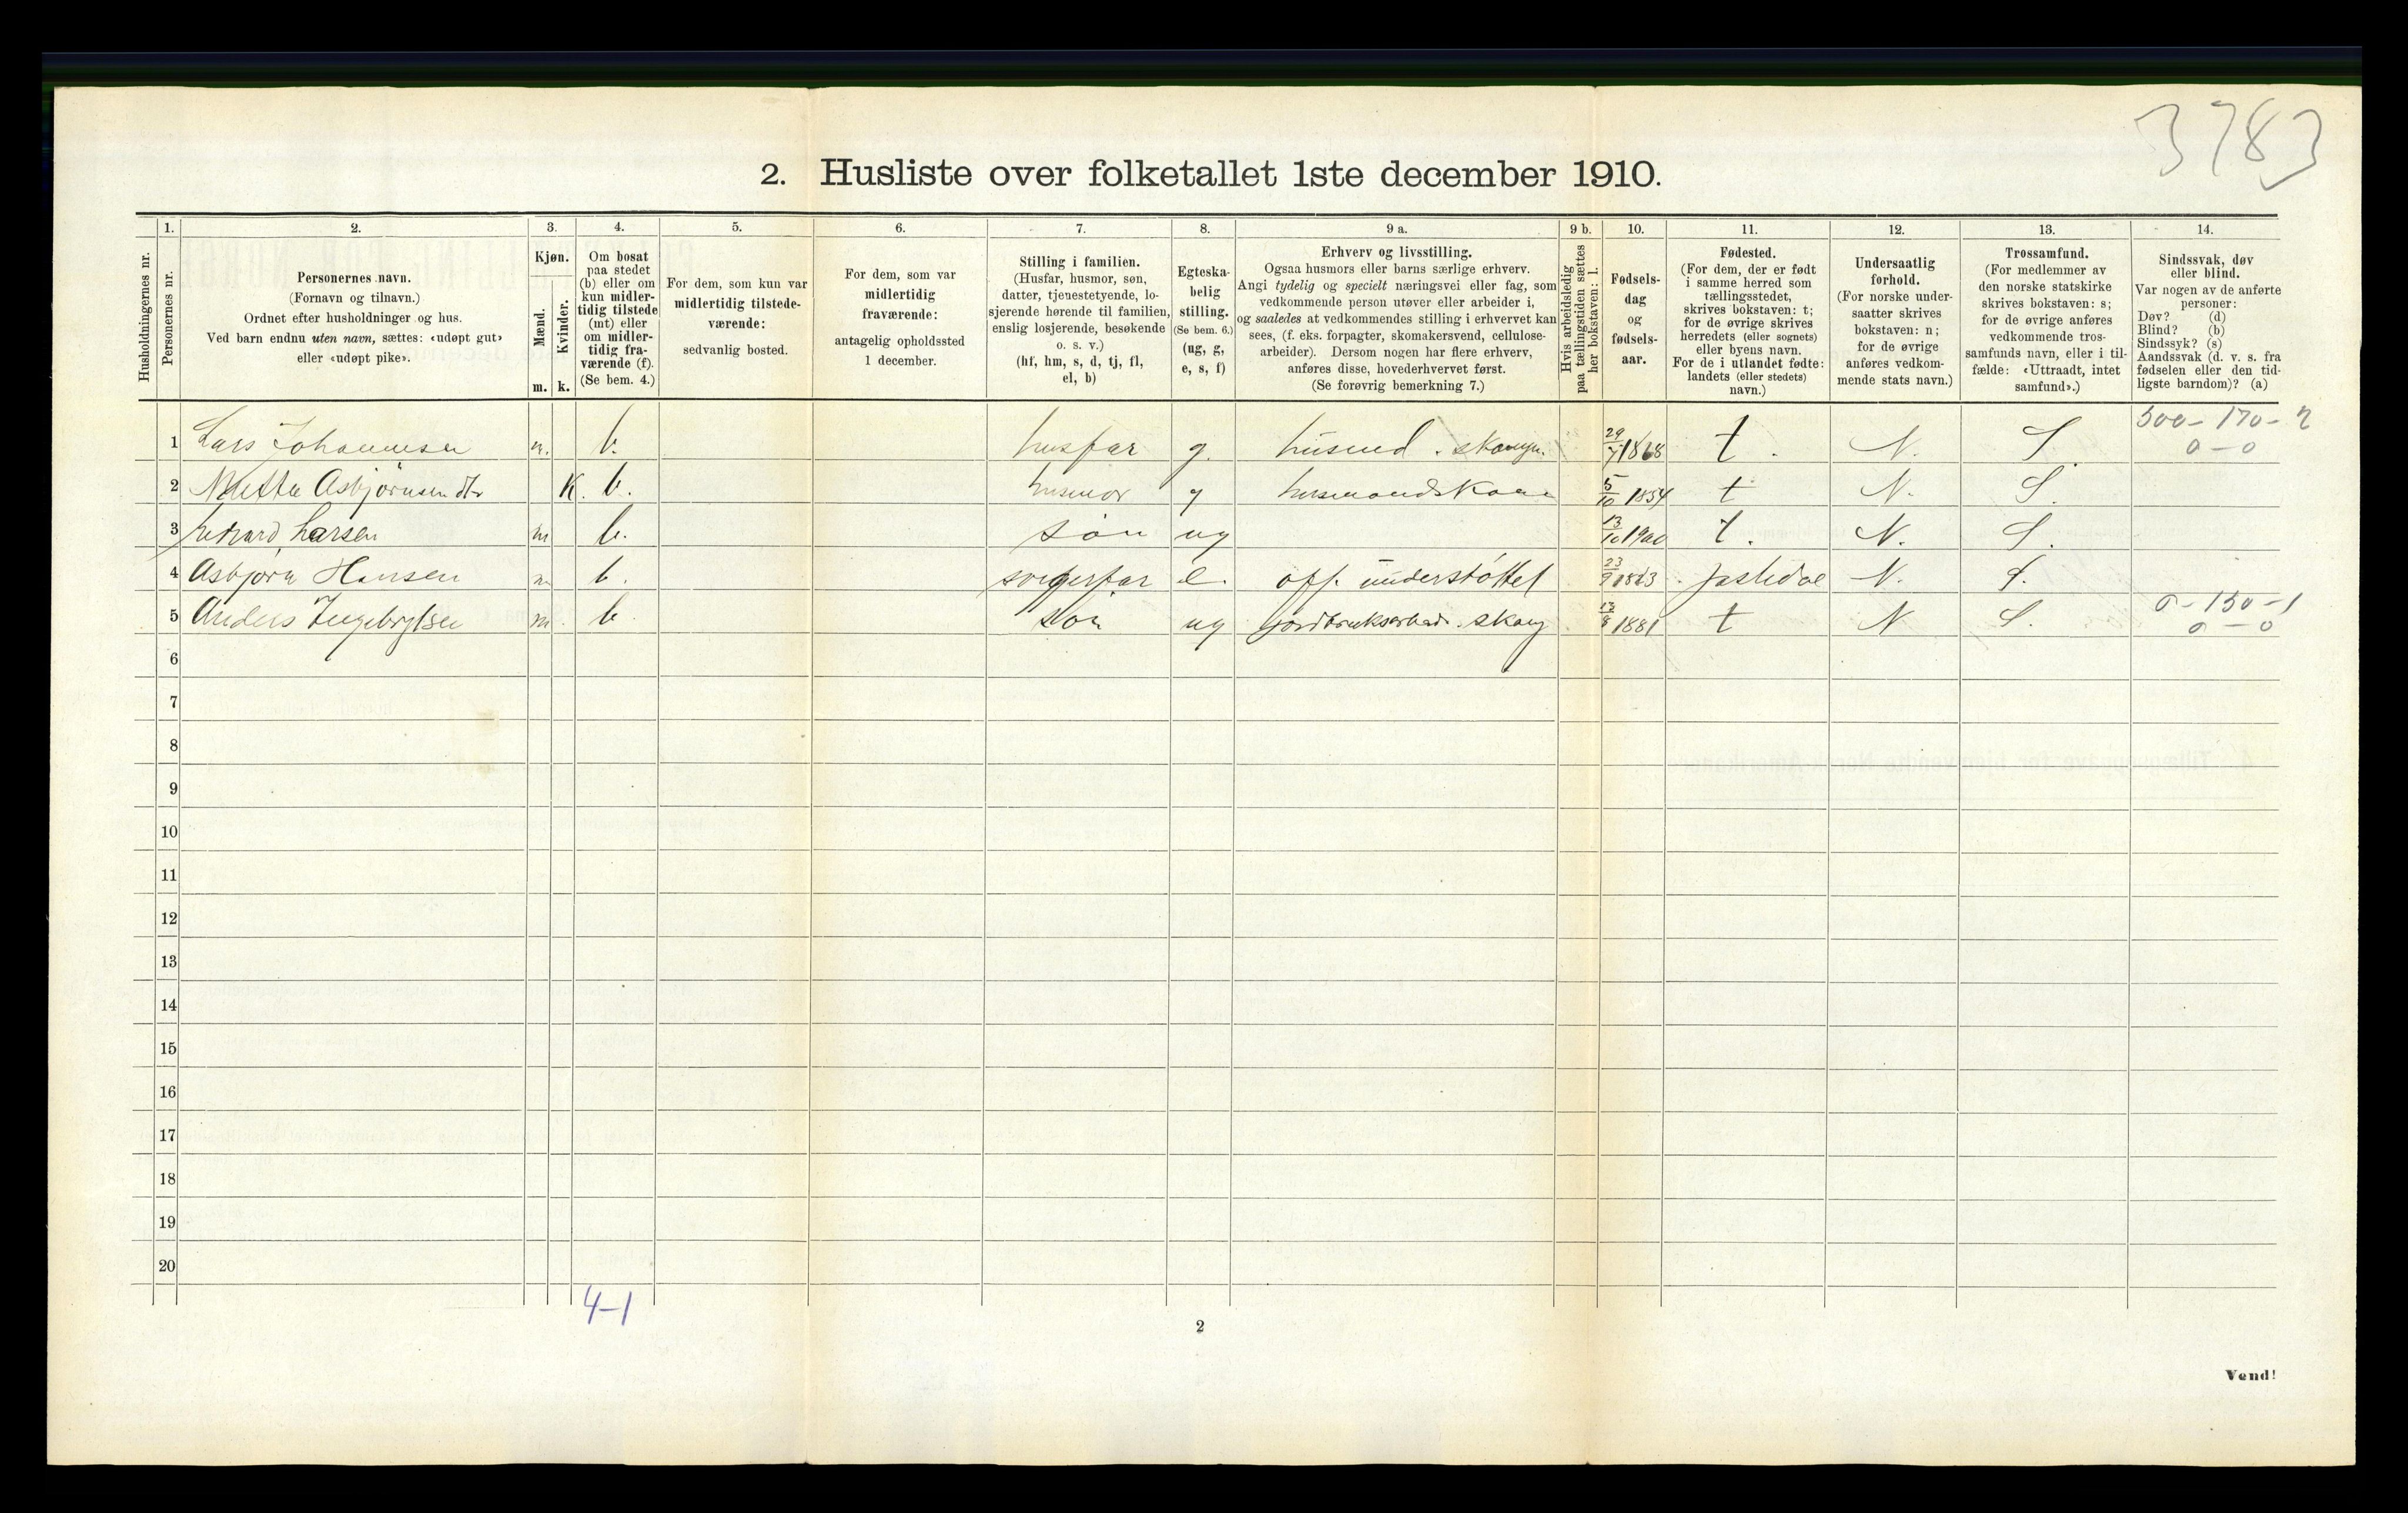 3783
2. Husliste over folketallet 1ste december 1910.
Husholdningernes nr.
1.
Personernes nr.
2.
Personernes navn.
(Fornavn og tilnavn.)
Ordnet efter husholdninger og hus.
Ved barn endnu uten navn, sættes: «udøpt gut»
eller «udøpt pike».
3.
Kjøn.
Mænd.
Kvinder.
m. k.
4.
Om bosat
paa stedet
(b) eller om
kun midler-
tidig tilstede
(mt) eller
om midler-
tidig fra-
værende (f).
(Se bem. 4.)
5.
For dem, som kun var
midlertidig tilstede-
værende:
sedvanlig bosted.
6.
For dem, som var
midlertidig
fraværende:
antagelig opholdssted
1 december.
7.
Stilling i familien.
(Husfar, husmor, søn,
datter, tjenestetyende, lo-
sjerende hørende til familien,
enslig losjerende, besøkende
o. s. v.)
(hf, hm, s, d, tj, fl,
el, b)
8.
Egteska-
belig
stilling.
(Se bem. 6.)
(ug, g,
e, s, f)
9 a.
Erhverv og livsstilling.
Ogsaa husmors eller barns særlige erhverv.
Angi tydelig og specielt næringsvei eller fag, som
vedkommende person utøver eller arbeider i,
og saaledes at vedkommendes stilling i erhvervet kan
sees, (f. eks. forpagter, skomakersvend, cellulose-
arbeider). Dersom nogen har flere erhverv,
anføres disse, hovederhvervet først.
(Se forøvrig bemerkning 7.)
9 b.
Hvis arbeidsledig
paa tællingstiden sættes
her bokstaven: l.
10.
Fødsels-
dag
og
fødsels-
aar.
11.
Fødested.
(For dem, der er født
i samme herred som
tællingsstedet,
skrives bokstaven: t;
for de øvrige skrives
herredets (eller sognets)
eller byens navn.
For de i utlandet fødte:
landets (eller stedets)
navn.)
12.
Undersaatlig
forhold.
(For norske under-
saatter skrives
bokstaven: n;
for de øvrige
anføres vedkom-
mende stats navn.)
13.
Trossamfund.
(For medlemmer av
den norske statskirke
skrives bokstaven: s;
for de øvrige anføres
vedkommende tros-
samfunds navn, eller i til-
fælde: «Uttraadt, intet
samfund».)
14.
Sindssvak, døv
eller blind.
Var nogen av de anførte
personer:
Døv? (d)
Blind? (b)
Sindssyk? (s)
Aandssvak (d. v. s. fra
fødselen eller den tid-
ligste barndom)? (a)
500-170-2
1 Lars Johannesen m. b. husfar g. husmd. 29/7 1868 t. N. S. 0-0
2 Mette Asbjørnsen dtr K. b. husmor g husmandskone 5/10 1854 t N. S.
3 Larsen m b. søn ug 13/10 1900 t. N. S.
4 Asbjørn Hansen m b. svigerfar e. off. understøttet 23/9 Jostedal N. S.
0-150-1
5 Anders Ingebrigtsen m. b søn ug skoug 13/8 1881 t N S. 0-0
6
7
8
9
10
11
12
13
14
15
16
17
18
19
20
4-1
2
Vend!